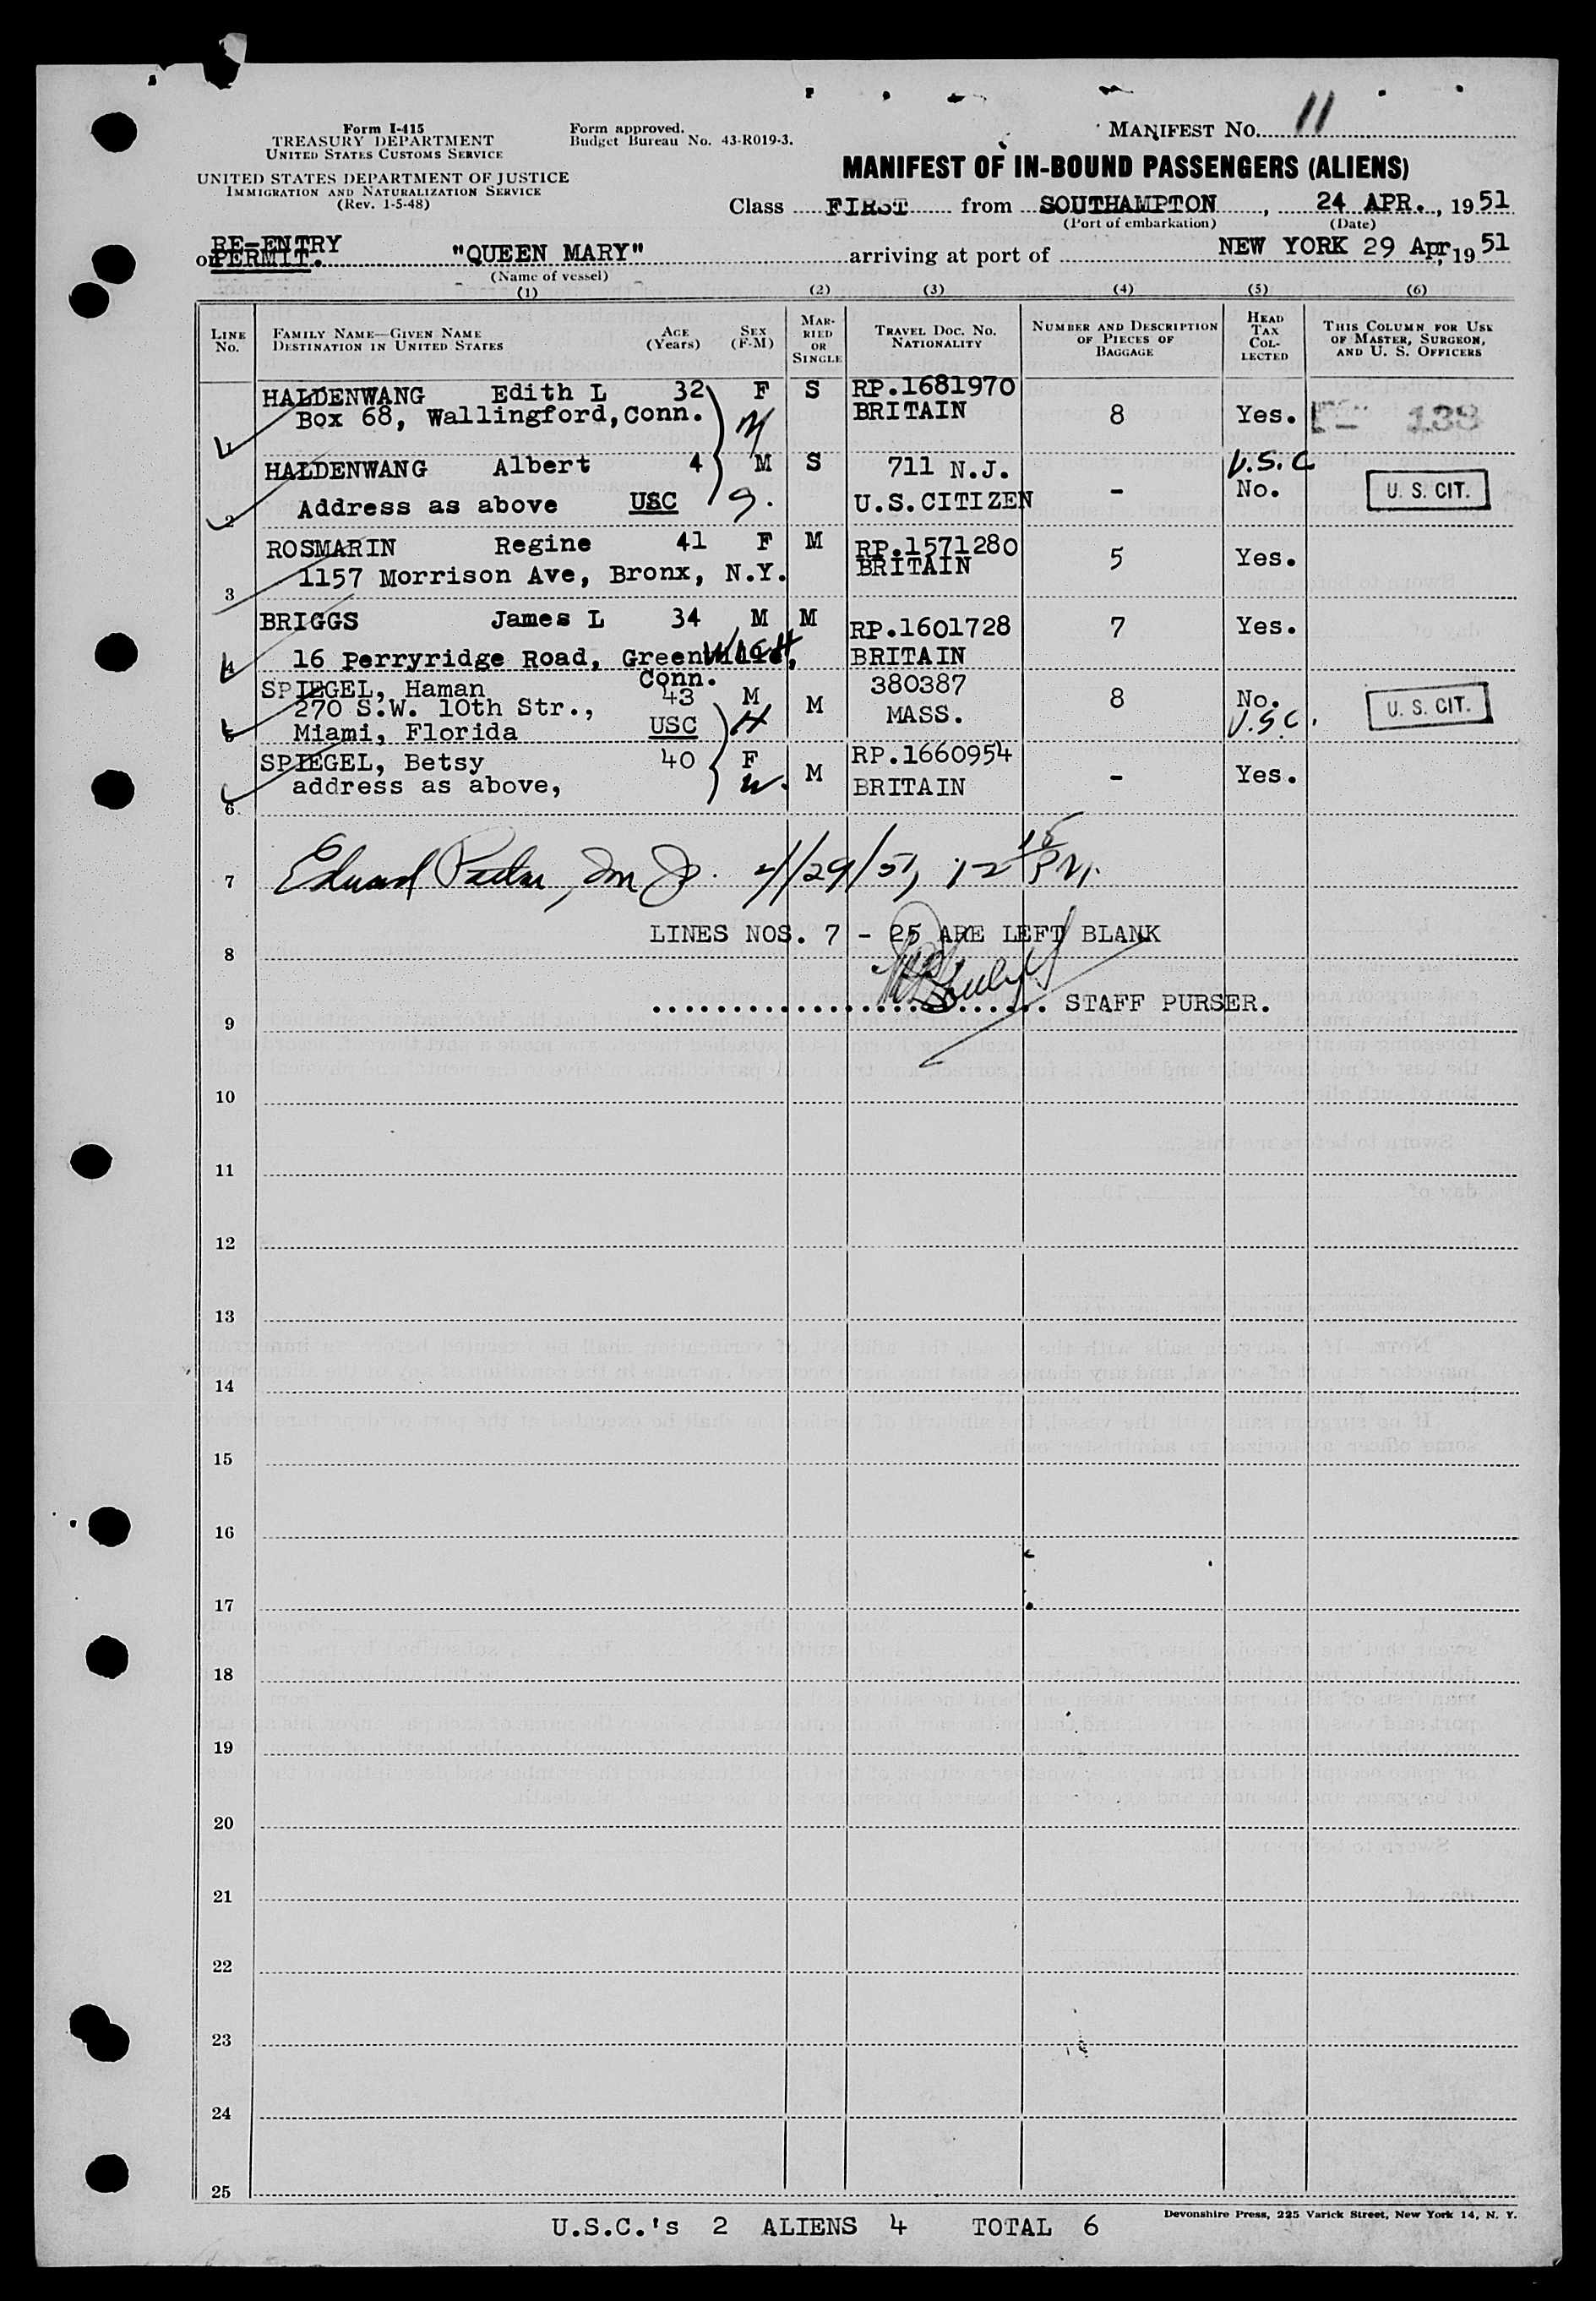 Form I-415
TREASURY DEPARTMENT
UNITED STATES CUSTOMS SERVICE
UNITED STATES DEPARTMENT OF JUSTICE
IMMIGRATION AND NATURALIZATION SERVICE
(Rev. 1-5-48)
Form approved.
Budget Bureau No. 43-R019-3.
MANIFEST NO. 11
MANIFEST OF IN-BOUND PASSENGERS (ALIENS)
Class FIRST from SOUTHAMPTON, 24 APR., 1951
(Port of embarkation) (Date)
RE-ENTRY
on PERMIT. "QUEEN MARY" arriving at port of NEW YORK 29 Apr, 1951
(Name of vessel)
(1) (2) (3) (4) (5) (6)
LINE NO. FAMILY NAME—GIVEN NAME DESTINATION IN UNITED STATES AGE (Years) SEX (F-M) MARRIED OR SINGLE TRAVEL DOC. NO. NATIONALITY NUMBER AND DESCRIPTION OF PIECES OF BAGGAGE HEAD TAX COLLECTED THIS COLUMN FOR USE OF MASTER, SURGEON, AND U. S. OFFICERS
HALDENWANG Edith L 32 F S RP.1681970
1 Box 68, Wallingford, Conn. M BRITAIN 8 Yes. 138
HALDENWANG Albert 4 M S 711 N.J. U.S.C
2 Address as above USC S. U.S.CITIZEN - No. U. S. CIT.
ROSMARIN Regine 41 F M RP.1571280
3 1157 Morrison Ave, Bronx, N.Y. BRITAIN 5 Yes.
BRIGGS James L 34 M M RP.1601728 7 Yes.
4 16 Perryridge Road, Greenwich, BRITAIN
Conn.
SPIEGEL, Haman 43 M M 380387 8 No. U. S. CIT.
270 S.W. 10th Str., MASS.
5 Miami, Florida USC H U.S.C.
SPIEGEL, Betsy 40 F M RP.1660954
6. address as above, W. BRITAIN - Yes.
7 4/29/51, 12 15 PM.
LINES NOS. 7 - 25 ARE LEFT BLANK
8
STAFF PURSER.
9
10
11
12
13
14
15
16
17
18
19
20
21
22
23
24
25
U.S.C.'s 2 ALIENS 4 TOTAL 6
Devonshire Press, 225 Varick Street, New York 14, N. Y.